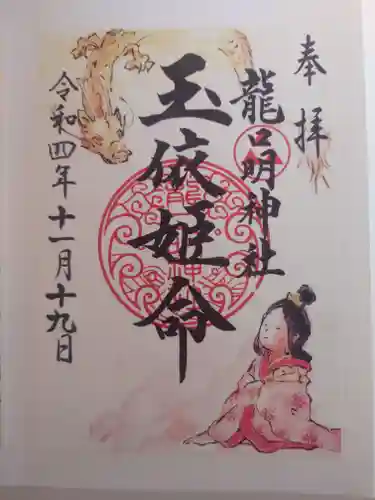 奉拝
龍口明神社
玉依姫命
令和四年十一月十九日